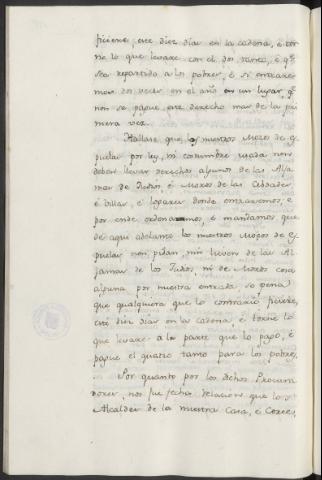 ficiere, esté diez dias en la cadena, é tor
ne lo que levare con el dos tanto, é qe.
sea repartido a los pobres, é si entrare
mos dos veces en el año en un lugar, qe.
non se pague este derecho mas de la pri
mera vez.
Hallase que los nuestros Mozos de Es
puelas por ley, ni costumbre usada non
deben llevar derechos algunos de las Alja
mas de Judios, é Moros de las Cibdades
é Villas, é logares donde entraremos, é
por ende ordenamos, é mandamos que
de aqui adelante los nuestros Mozos de Es
puelas non pidan, nin lieven de las Al
jamas de los Judios, ni de Moros cosa
alguna por nuestra entrada, so pena
que qualquiera que lo contrario ficiere,
esté diez dias en la cadena, é torne lo
que levare a la parte que lo pagó, é
pague el quatro tanto para los pobres.
Por quanto por los dichos Procura
dores, nos fue fecha relacion que los
Alcaldes de la nuestra Casa, é Corte,